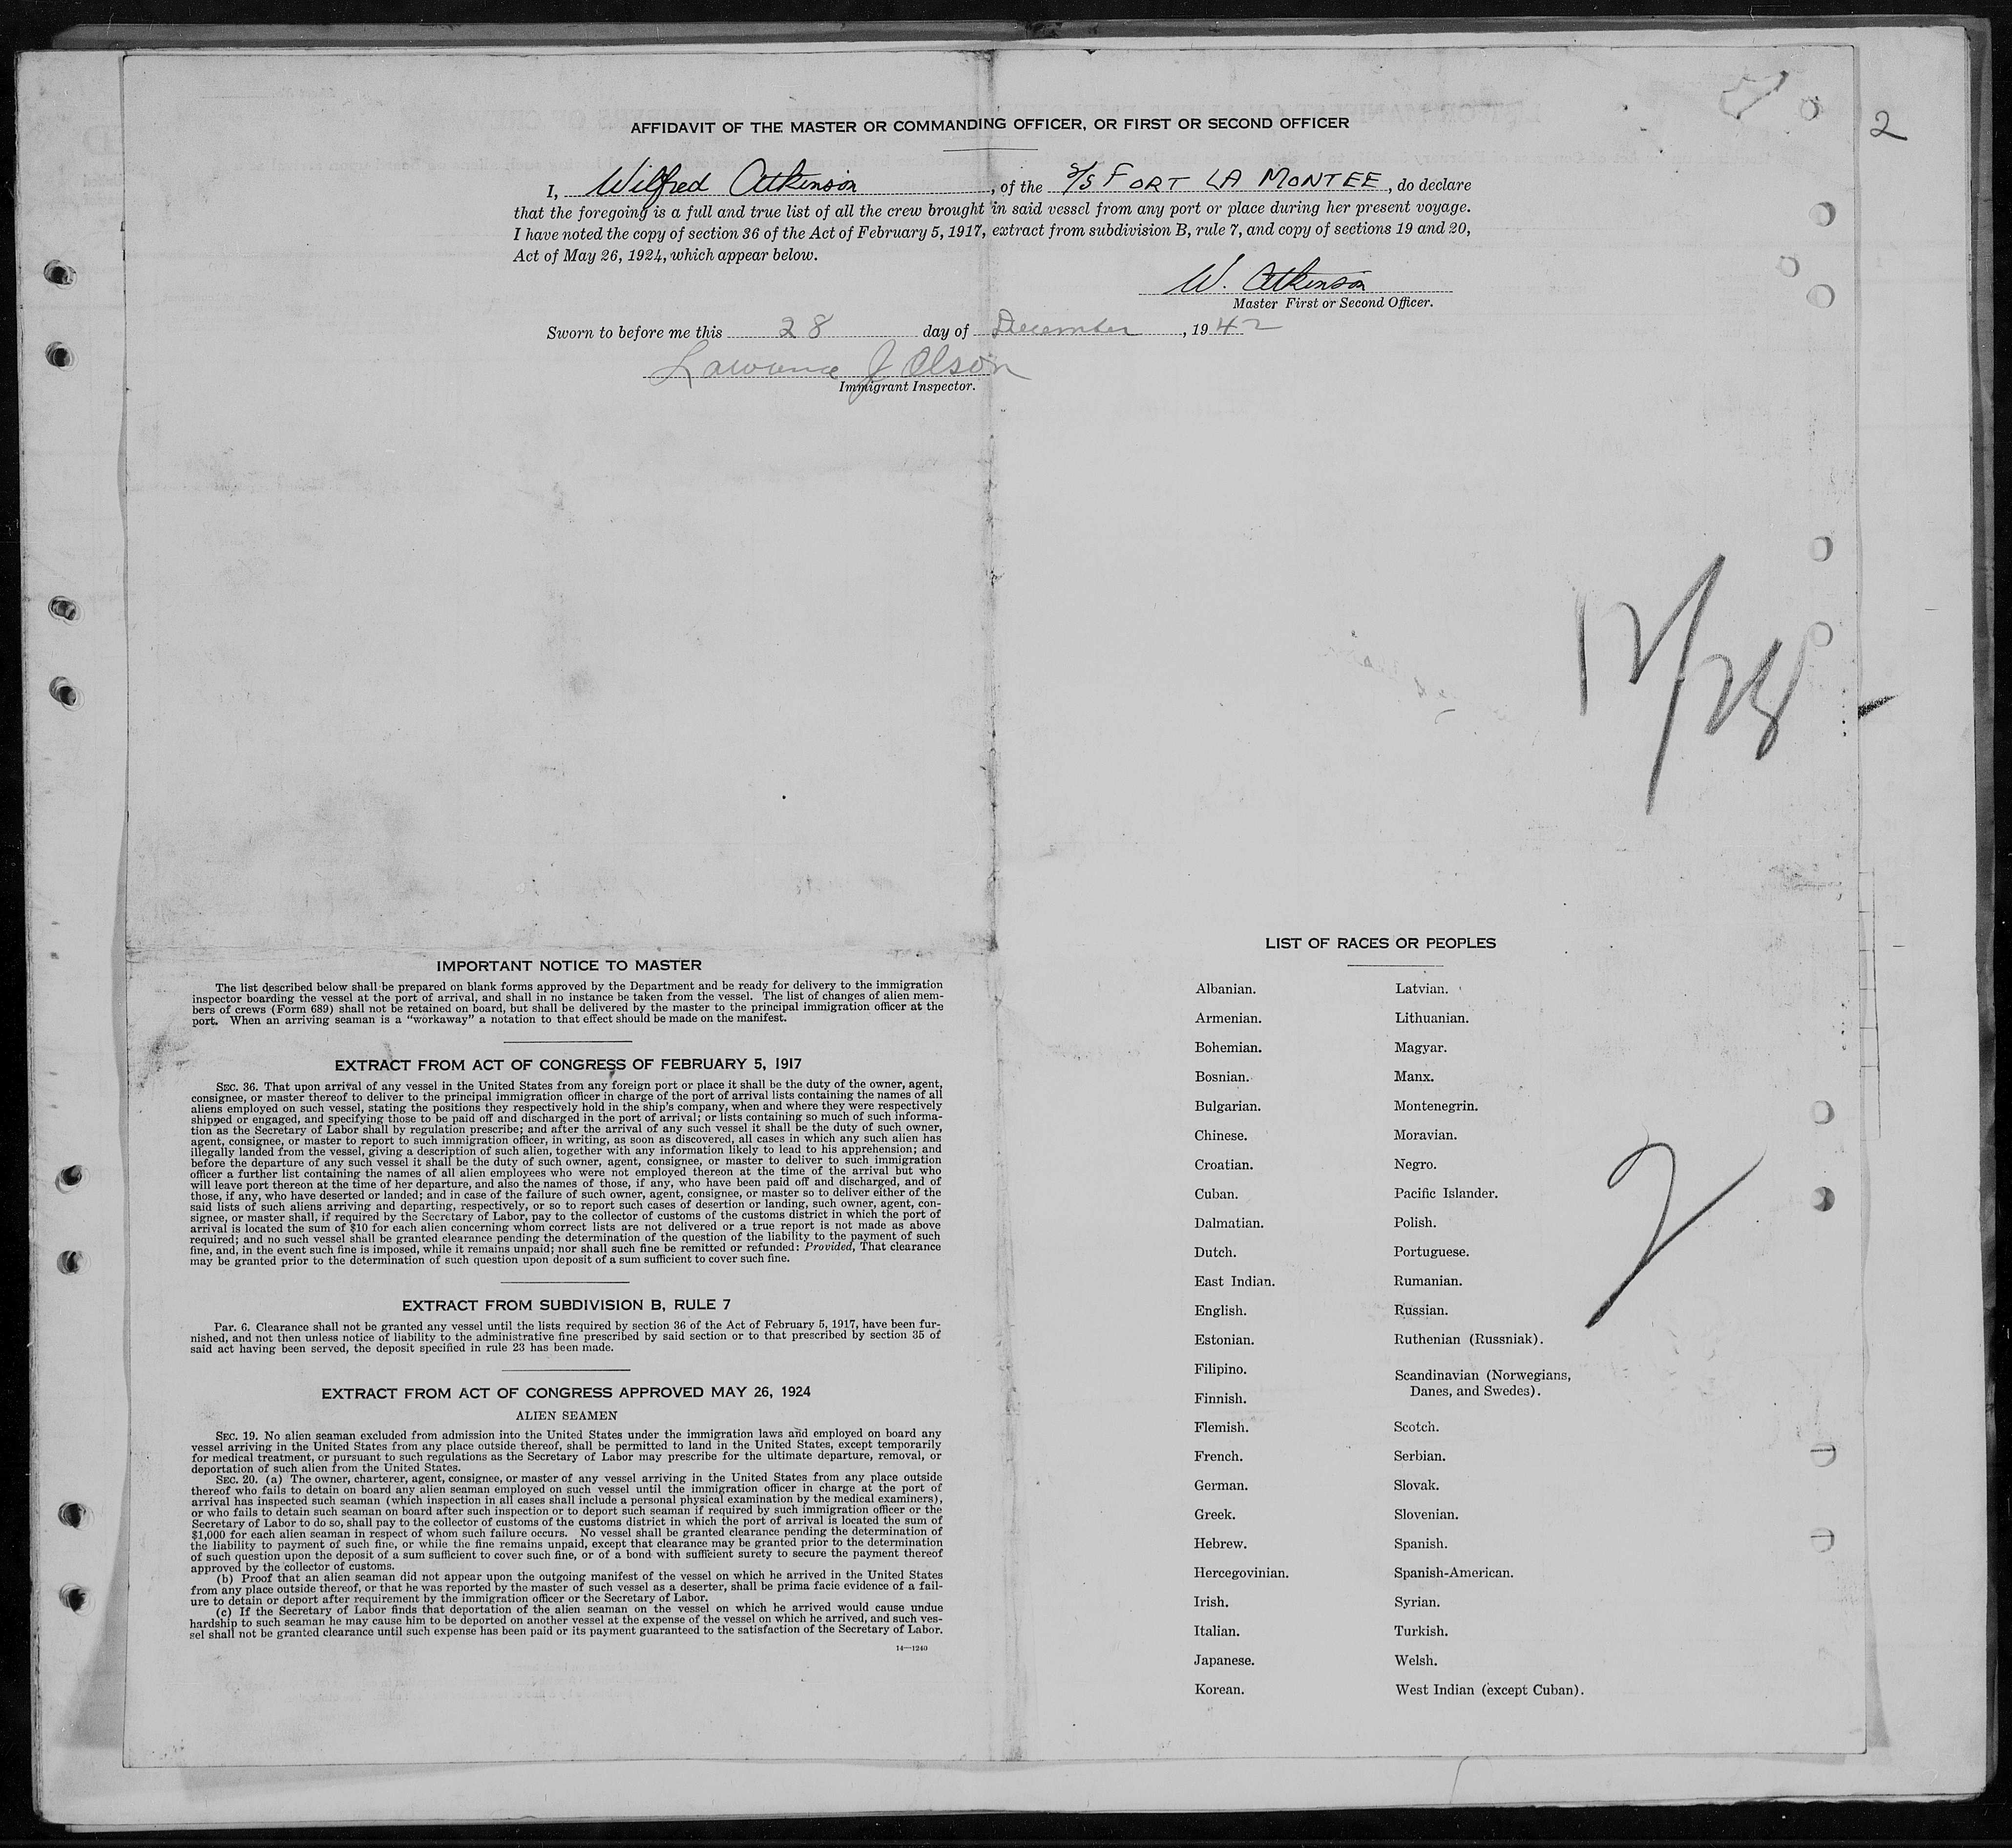 2
AFFIDAVIT OF THE MASTER OR COMMANDING OFFICER, OR FIRST OR SECOND OFFICER
I, Wilfred Atkinson, of the S/S FORT LA MONTEE, do declare
that the foregoing is a full and true list of all the crew brought in said vessel from any port or place during her present voyage.
I have noted the copy of section 36 of the Act of February 5, 1917, extract from subdivision B, rule 7, and copy of sections 19 and 20,
Act of May 26, 1924, which appear below.
W. Atkinson
Master First or Second Officer.
Sworn to before me this 28 day of December, 1942
Lawrence J Olson
Immigrant Inspector.
12/28
IMPORTANT NOTICE TO MASTER
The list described below shall be prepared on blank forms approved by the Department and be ready for delivery to the immigration
inspector boarding the vessel at the port of arrival, and shall in no instance be taken from the vessel. The list of changes of alien mem-
bers of crews (Form 689) shall not be retained on board, but shall be delivered by the master to the principal immigration officer at the
port. When an arriving seaman is a "workaway" a notation to that effect should be made on the manifest.
EXTRACT FROM ACT OF CONGRESS OF FEBRUARY 5, 1917
SEC. 36. That upon arrival of any vessel in the United States from any foreign port or place it shall be the duty of the owner, agent,
consignee, or master thereof to deliver to the principal immigration officer in charge of the port of arrival lists containing the names of all
aliens employed on such vessel, stating the positions they respectively hold in the ship's company, when and where they were respectively
shipped or engaged, and specifying those to be paid off and discharged in the port of arrival; or lists containing so much of such informa-
tion as the Secretary of Labor shall by regulation prescribe; and after the arrival of any such vessel it shall be the duty of such owner,
agent, consignee, or master to report to such immigration officer, in writing, as soon as discovered, all cases in which any such alien has
illegally landed from the vessel, giving a description of such alien, together with any information likely to lead to his apprehension; and
before the departure of any such vessel it shall be the duty of such owner, agent, consignee, or master to deliver to such immigration
officer a further list containing the names of all alien employees who were not employed thereon at the time of the arrival but who
will leave port thereon at the time of her departure, and also the names of those, if any, who have been paid off and discharged, and of
those, if any, who have deserted or landed; and in case of the failure of such owner, agent, consignee, or master so to deliver either of the
said lists of such aliens arriving and departing, respectively, or so to report such cases of desertion or landing, such owner, agent, con-
signee, or master shall, if required by the Secretary of Labor, pay to the collector of customs of the customs district in which the port of
arrival is located the sum of $10 for each alien concerning whom correct lists are not delivered or a true report is not made as above
required; and no such vessel shall be granted clearance pending the determination of the question of the liability to the payment of such
fine, and, in the event such fine is imposed, while it remains unpaid; nor shall such fine be remitted or refunded: Provided, That clearance
may be granted prior to the determination of such question upon deposit of a sum sufficient to cover such fine.
EXTRACT FROM SUBDIVISION B, RULE 7
Par. 6. Clearance shall not be granted any vessel until the lists required by section 36 of the Act of February 5, 1917, have been fur-
nished, and not then unless notice of liability to the administrative fine prescribed by said section or to that prescribed by section 35 of
said act having been served, the deposit specified in rule 23 has been made.
EXTRACT FROM ACT OF CONGRESS APPROVED MAY 26, 1924
ALIEN SEAMEN
SEC. 19. No alien seaman excluded from admission into the United States under the immigration laws and employed on board any
vessel arriving in the United States from any place outside thereof, shall be permitted to land in the United States, except temporarily
for medical treatment, or pursuant to such regulations as the Secretary of Labor may prescribe for the ultimate departure, removal, or
deportation of such alien from the United States.
SEC. 20. (a) The owner, charterer, agent, consignee, or master of any vessel arriving in the United States from any place outside
thereof who fails to detain on board any alien seaman employed on such vessel until the immigration officer in charge at the port of
arrival has inspected such seaman (which inspection in all cases shall include a personal physical examination by the medical examiners),
or who fails to detain such seaman on board after such inspection or to deport such seaman if required by such immigration officer or the
Secretary of Labor to do so, shall pay to the collector of customs of the customs district in which the port of arrival is located the sum of
$1,000 for each alien seaman in respect of whom such failure occurs. No vessel shall be granted clearance pending the determination of
the liability to payment of such fine, or while the fine remains unpaid, except that clearance may be granted prior to the determination
of such question upon the deposit of a sum sufficient to cover such fine, or of a bond with sufficient surety to secure the payment thereof
approved by the collector of customs.
(b) Proof that an alien seaman did not appear upon the outgoing manifest of the vessel on which he arrived in the United States
from any place outside thereof, or that he was reported by the master of such vessel as a deserter, shall be prima facie evidence of a fail-
ure to detain or deport after requirement by the immigration officer or the Secretary of Labor.
(c) If the Secretary of Labor finds that deportation of the alien seaman on the vessel on which he arrived would cause undue
hardship to such seaman he may cause him to be deported on another vessel at the expense of the vessel on which he arrived, and such ves-
sel shall not be granted clearance until such expense has been paid or its payment guaranteed to the satisfaction of the Secretary of Labor.
14—1240
LIST OF RACES OR PEOPLES
Albanian.
Armenian.
Bohemian.
Bosnian.
Bulgarian.
Chinese.
Croatian.
Cuban.
Dalmatian.
Dutch.
East Indian.
English.
Estonian.
Filipino.
Finnish.
Flemish.
French.
German.
Greek.
Hebrew.
Hercegovinian.
Irish.
Italian.
Japanese.
Korean.
Latvian.
Lithuanian.
Magyar.
Manx.
Montenegrin.
Moravian.
Negro.
Pacific Islander.
Polish.
Portuguese.
Rumanian.
Russian.
Ruthenian (Russniak).
Scandinavian (Norwegians,
Danes, and Swedes).
Scotch.
Serbian.
Slovak.
Slovenian.
Spanish.
Spanish-American.
Syrian.
Turkish.
Welsh.
West Indian (except Cuban).
2